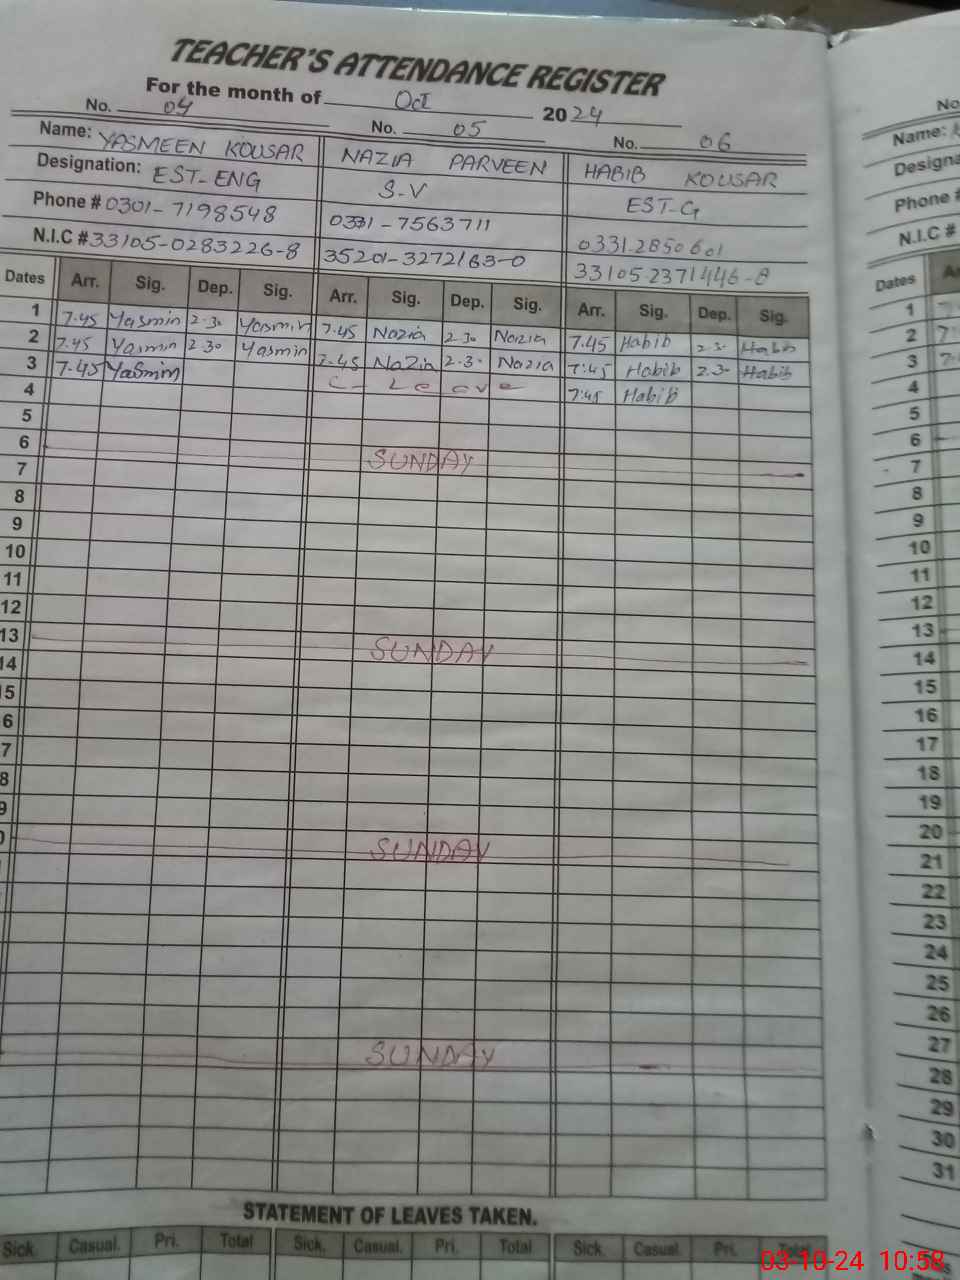 TEACHER'S ATTENDANCE REGISTER
For the month of Oct 2024
No. 04 No. 05 No. 06
Name: YASMEEN KOUSAR NAZIA PARVEEN HABIB KOUSAR
Designation: EST-ENG S-V EST-G
Phone # 0301-7198548 0331-7563711 0331-2850601
N.I.C # 33105-0283226-8 35201-3272163-0 33105-2371446-8
Dates Arr. Sig. Dep. Sig. Arr. Sig. Dep. Sig. Arr. Sig. Dep. Sig.
1 7.45 Yasmin 2-30 Yasmin 7.45 Nazia 2-30 Nazia 7.45 Habib 2.3- Habib
2 7.45 Yasmin 2-30 Yasmin 7-45 Nazia 2-3- Nazia 7:45 Habib 2.3- Habib
3 7-45 Yasmin C- Leave 7:45 Habib
4
5
6 SUNDAY
7
8
9
10
11
12
13 SUNDAY
14
5
6
7
8
9
SUNDAY
SUNDAY
STATEMENT OF LEAVES TAKEN.
Sick. Casual. Pri. Total Sick. Casual. Pri. Total Sick. Casual. Pri. Total
No
Name:
Designa
Phone #
N.I.C #
Dates
1
2
3
4
5
6
7
8
9
10
11
12
13
14
15
16
17
18
19
20
21
22
23
24
25
26
27
28
29
30
31
03-10-24 10:58